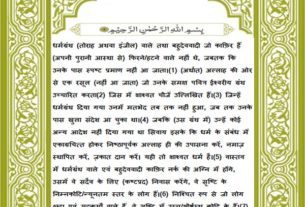 بِسْمِ اللَّهِ الرَّحْمَٰنِ الرَّحِيمِ
धर्मग्रंथ (तोराह अथवा इंजील) वाले तथा बहुदेववादी जो काफ़िर हैं
(अपनी पुरानी आस्था से) फिरने/हटने वाले नहीं थे, जबतक कि
उनके पास स्पष्ट प्रमाण नहीं आ जाता।(1) (अर्थात) अल्लाह की ओर
से एक रसूल (नहीं आ जाता) जो उनके समक्ष पवित्र ईश्वरीय ग्रंथ
उच्चारित करता(2) जिस में शाश्वत पोर्ज उल्लिखित हैं।(3) जिन्हें
धर्मग्रंथ दिया गया उनमें मतभेद तब तक नहीं हुआ, जब तक उनके
पास खुला संदेश आ चुका था।(4) जबकि (उस ग्रंथ में) उन्हें कोई
अन्य आदेश नहीं दिया गया था सिवाय इसके कि धर्म के संबंध में
एकाग्रचित्त होकर निष्ठापूर्वक अल्लाह ही की उपासना करें, नमाज़
स्थापित करें, ज़कात दान करें। यही तो शाश्वत धर्म है।(5) वास्तव
में धर्मग्रंथ वाले एवं बहुदेववादी काफ़िर नर्क की अग्नि में होंगे,
उसमें वे सदैव के लिए (कष्टप्रद) निवास करेंगे, वे सृष्टि के
निम्नकोटि/न्यूनतम स्तर के लोग हैं।(6) निश्चित रूप से जो लोग